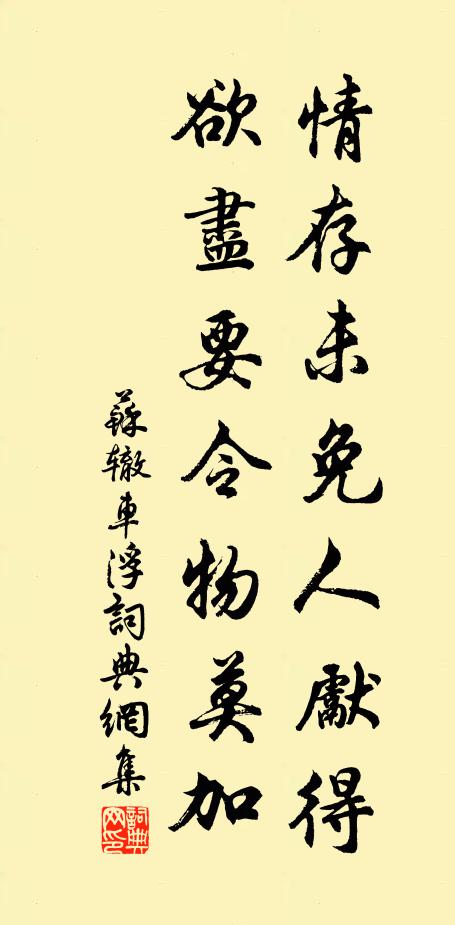 情存未免人獻得
欲盡要令物莫加
蘇辙車浮詞典網集
詞典網印